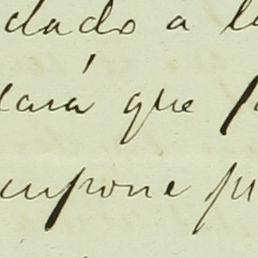 dado a l
ará que p
upone p